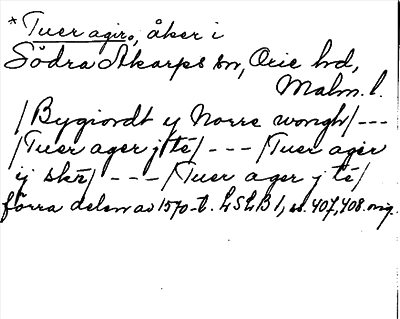 *Tuer agir, åker i
Södra Åkarps sn, Oxie hd,
Malm. l.
/Bygiordt y Norre wongh/---
/Tuer ager j te/ --- /Tuer ager
ij skr/ --- /Tuer ager j te/
förra delen av 1570-t. LSLB 1, s. 407, 408. orig.